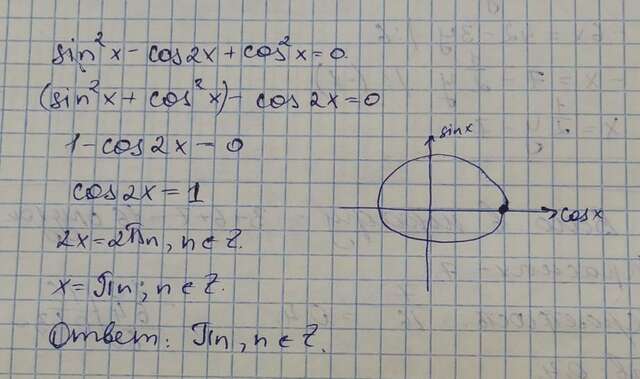 sin²x − cos2x + cos²x = 0
(sin²x + cos²x) − cos 2x = 0
1 − cos2x − 0
cos2x = 1
2x = 2πn, n ∈ Z.
x = πn; n ∈ Z.
Ответ: πn, n ∈ Z.
sinx
cosx